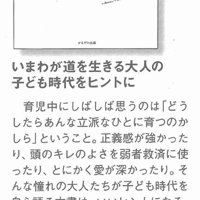 いまわが道を生きる大人の
子ども時代をヒントに
育児中にしばしば思うのは「どう
したらあんな立派なひとに育つのか
しら」ということ。正義感が強かった
り、頭のキレのよさを弱者救済に使
ったり、とにかく愛が深かったり。そ
んな憧れの大人たちが子ども時代を